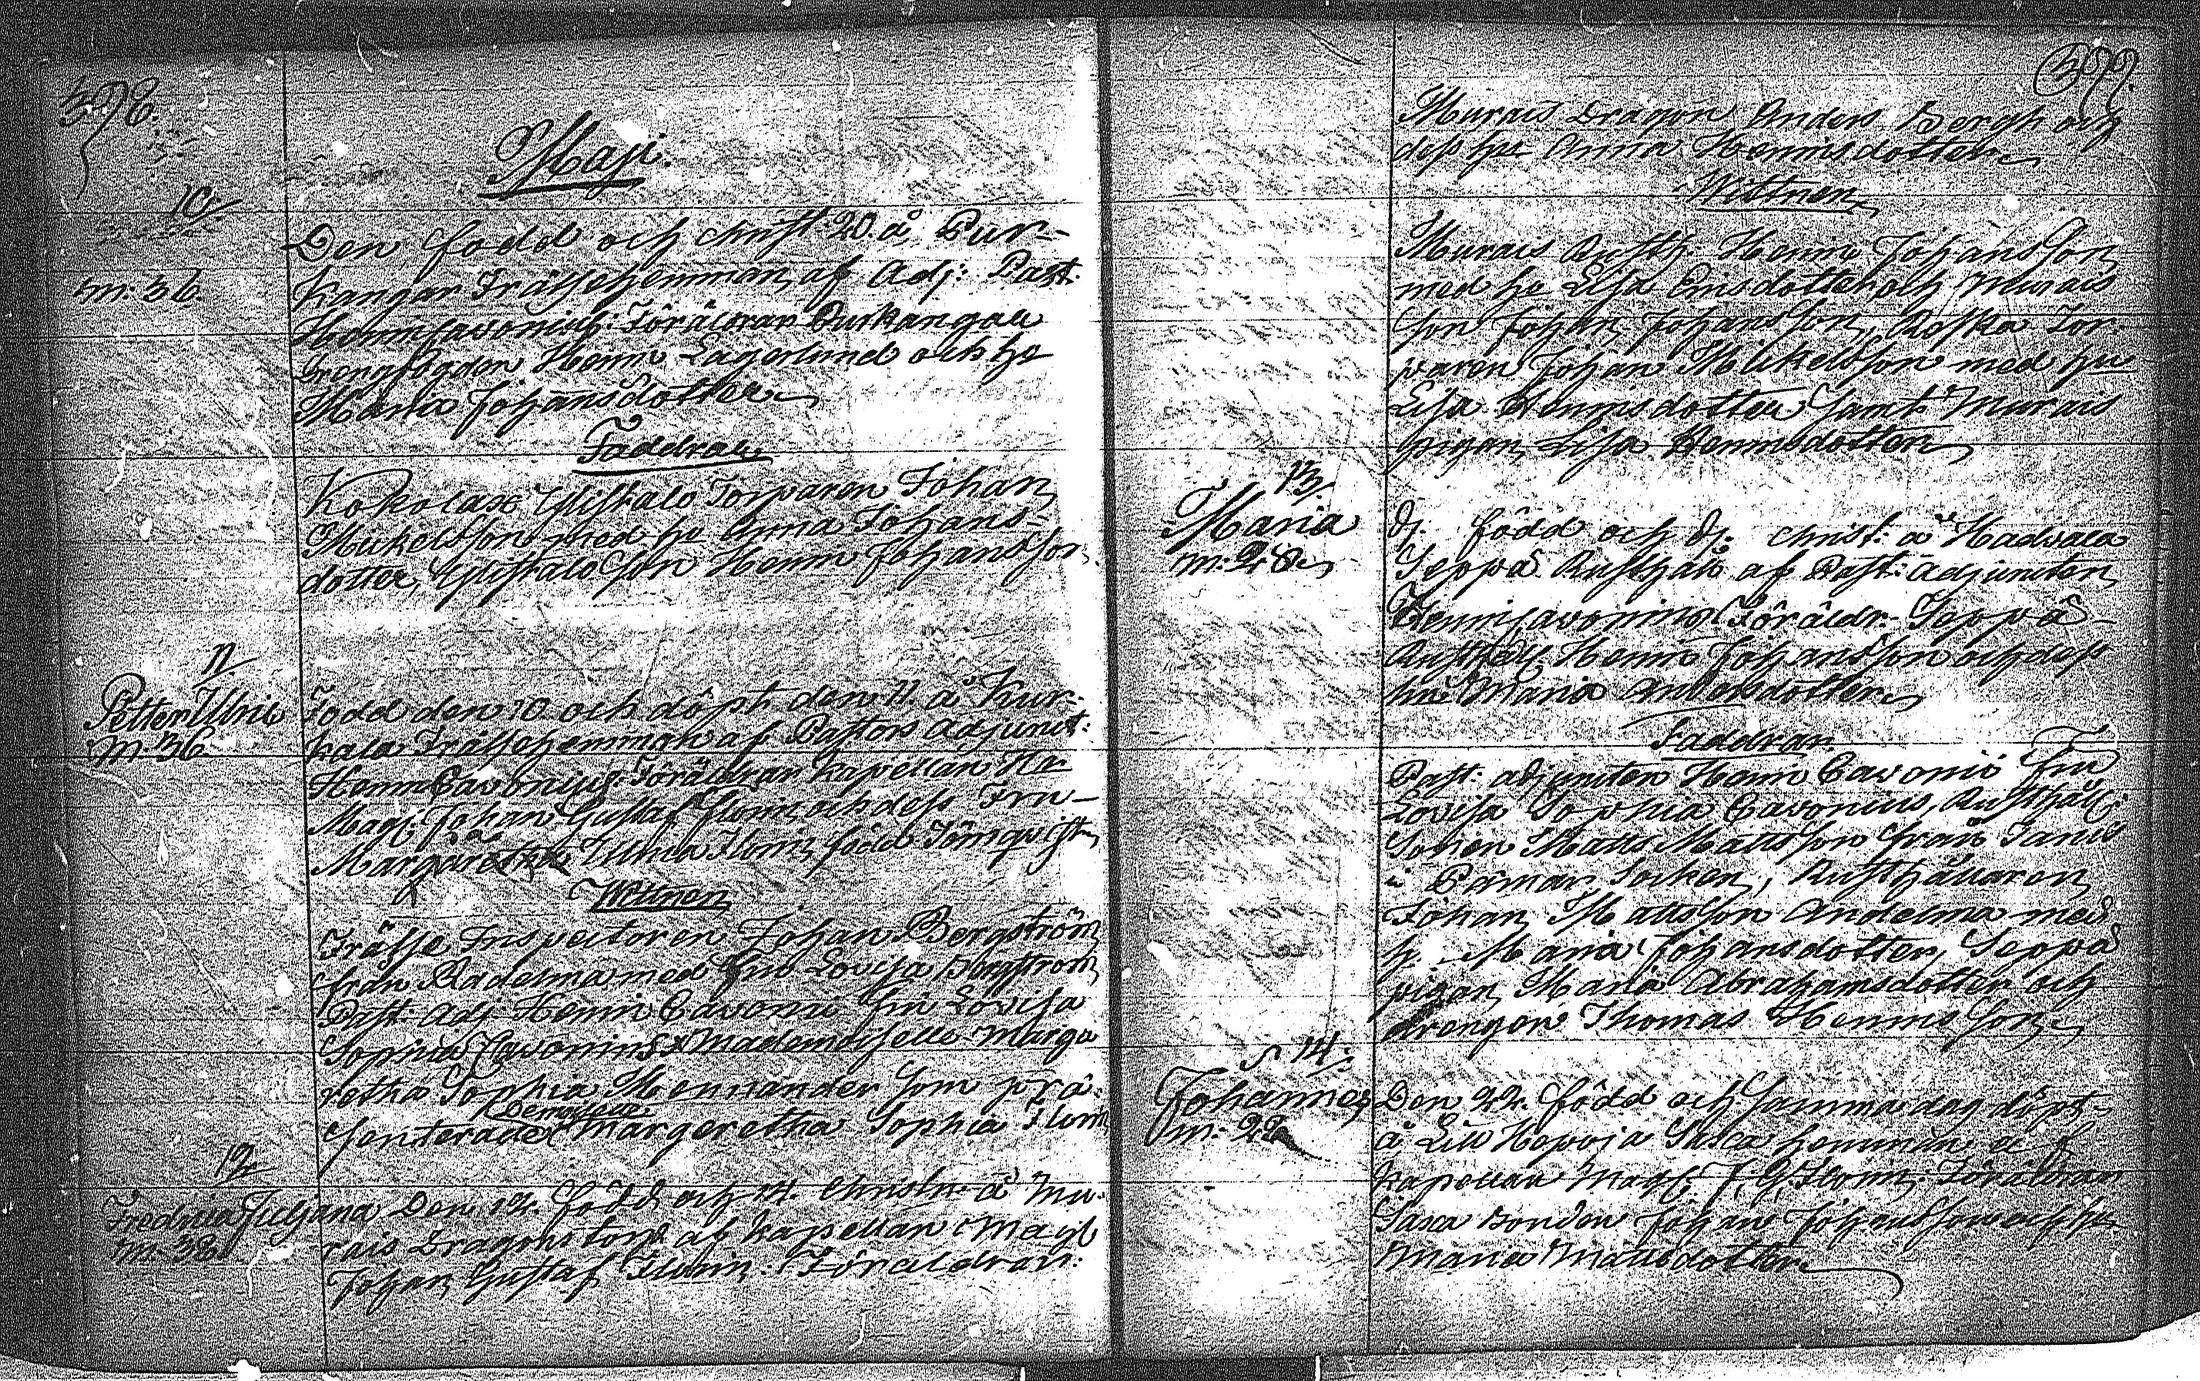 376.
Maji.
10
m: 36.
Den född och christ: 20. å Pur-
kangar Frälsehemman af Adj: Past:
Henric Cavonius. Föräldrar Purkangar
Drengfogden Henric Lagerlund och h:
Maria Johansdotter
Faddrar
Kokolax Torparen Johan
Mickelsson med h: Anna Johans-
dotter, son Henric Johansson.
11
Petter Ulric
m. 36
Född den 10. och döpt den 11. å Kur-
kala Frälsehemman af Pastors Adjunct:
Henric Cavonius Föräldrar Kapellan
Mag: Johan Gustaf Florin och dess Fru
Ulrica Florin född Törnqvist
Wittnen
Frälse Inspectoren Johan Bergström
från Radelma med Fru Lovisa Bergström
Past: Adj: Henric Cavonius Fru Lovisa
Sophia Cavonius, Mademoiselle Marga
retha Sophia som præ-
senterade Demoiselle Margeretha Sophia Florin
12
Fredrica Juliana
m. 38
Den 12. född och 14. christn: å Mu-
rais Dragonstorp af Kapellan Mag:
Johan Gustaf Florin. Föräldrar:
377.
Murais Dragon Anders Bergh och
dess hu Anna Henricsdotter
Wittnen
Murais Rusth: Henric Johansson
med h: Lisa och Murais
son Johan Johansson, Tor-
paren Johan Mickelsson med hu
Lisa Henricsdotter samt Murais
pigan Lisa Henricsdotter
13.
Maria
m: 28.
d. född och d. christ: å Hadvala
Seppä Rusthåll af Past: Adjuncten
Henric Cavonius Föräldr: Seppä
Rusthåll: Henric Johansson och dess
hu Maria Andersdotter
Faddrar
Past: adjuncten Henric Cavonius Fru
Lovisa Sophia Cavonius, Rusthåll:
Sonen Matts Mattsson från
i Pemar Sochen, Rusthållaren
Johan Mattsson Andelma med
h: Maria Johansdotter, Seppä
pigan Maria Abrahamsdotter och
drengen Thomas Henricsson
14.
Johannes
m: 22
Den 22. född och samma dag döpt
å Lill Hepoja Saxa hemman af
Kapellan Mag: J. G. Florin. Föräldrar
Saxa Bonden Johan Johansson och hu
Maria Mattsdotter